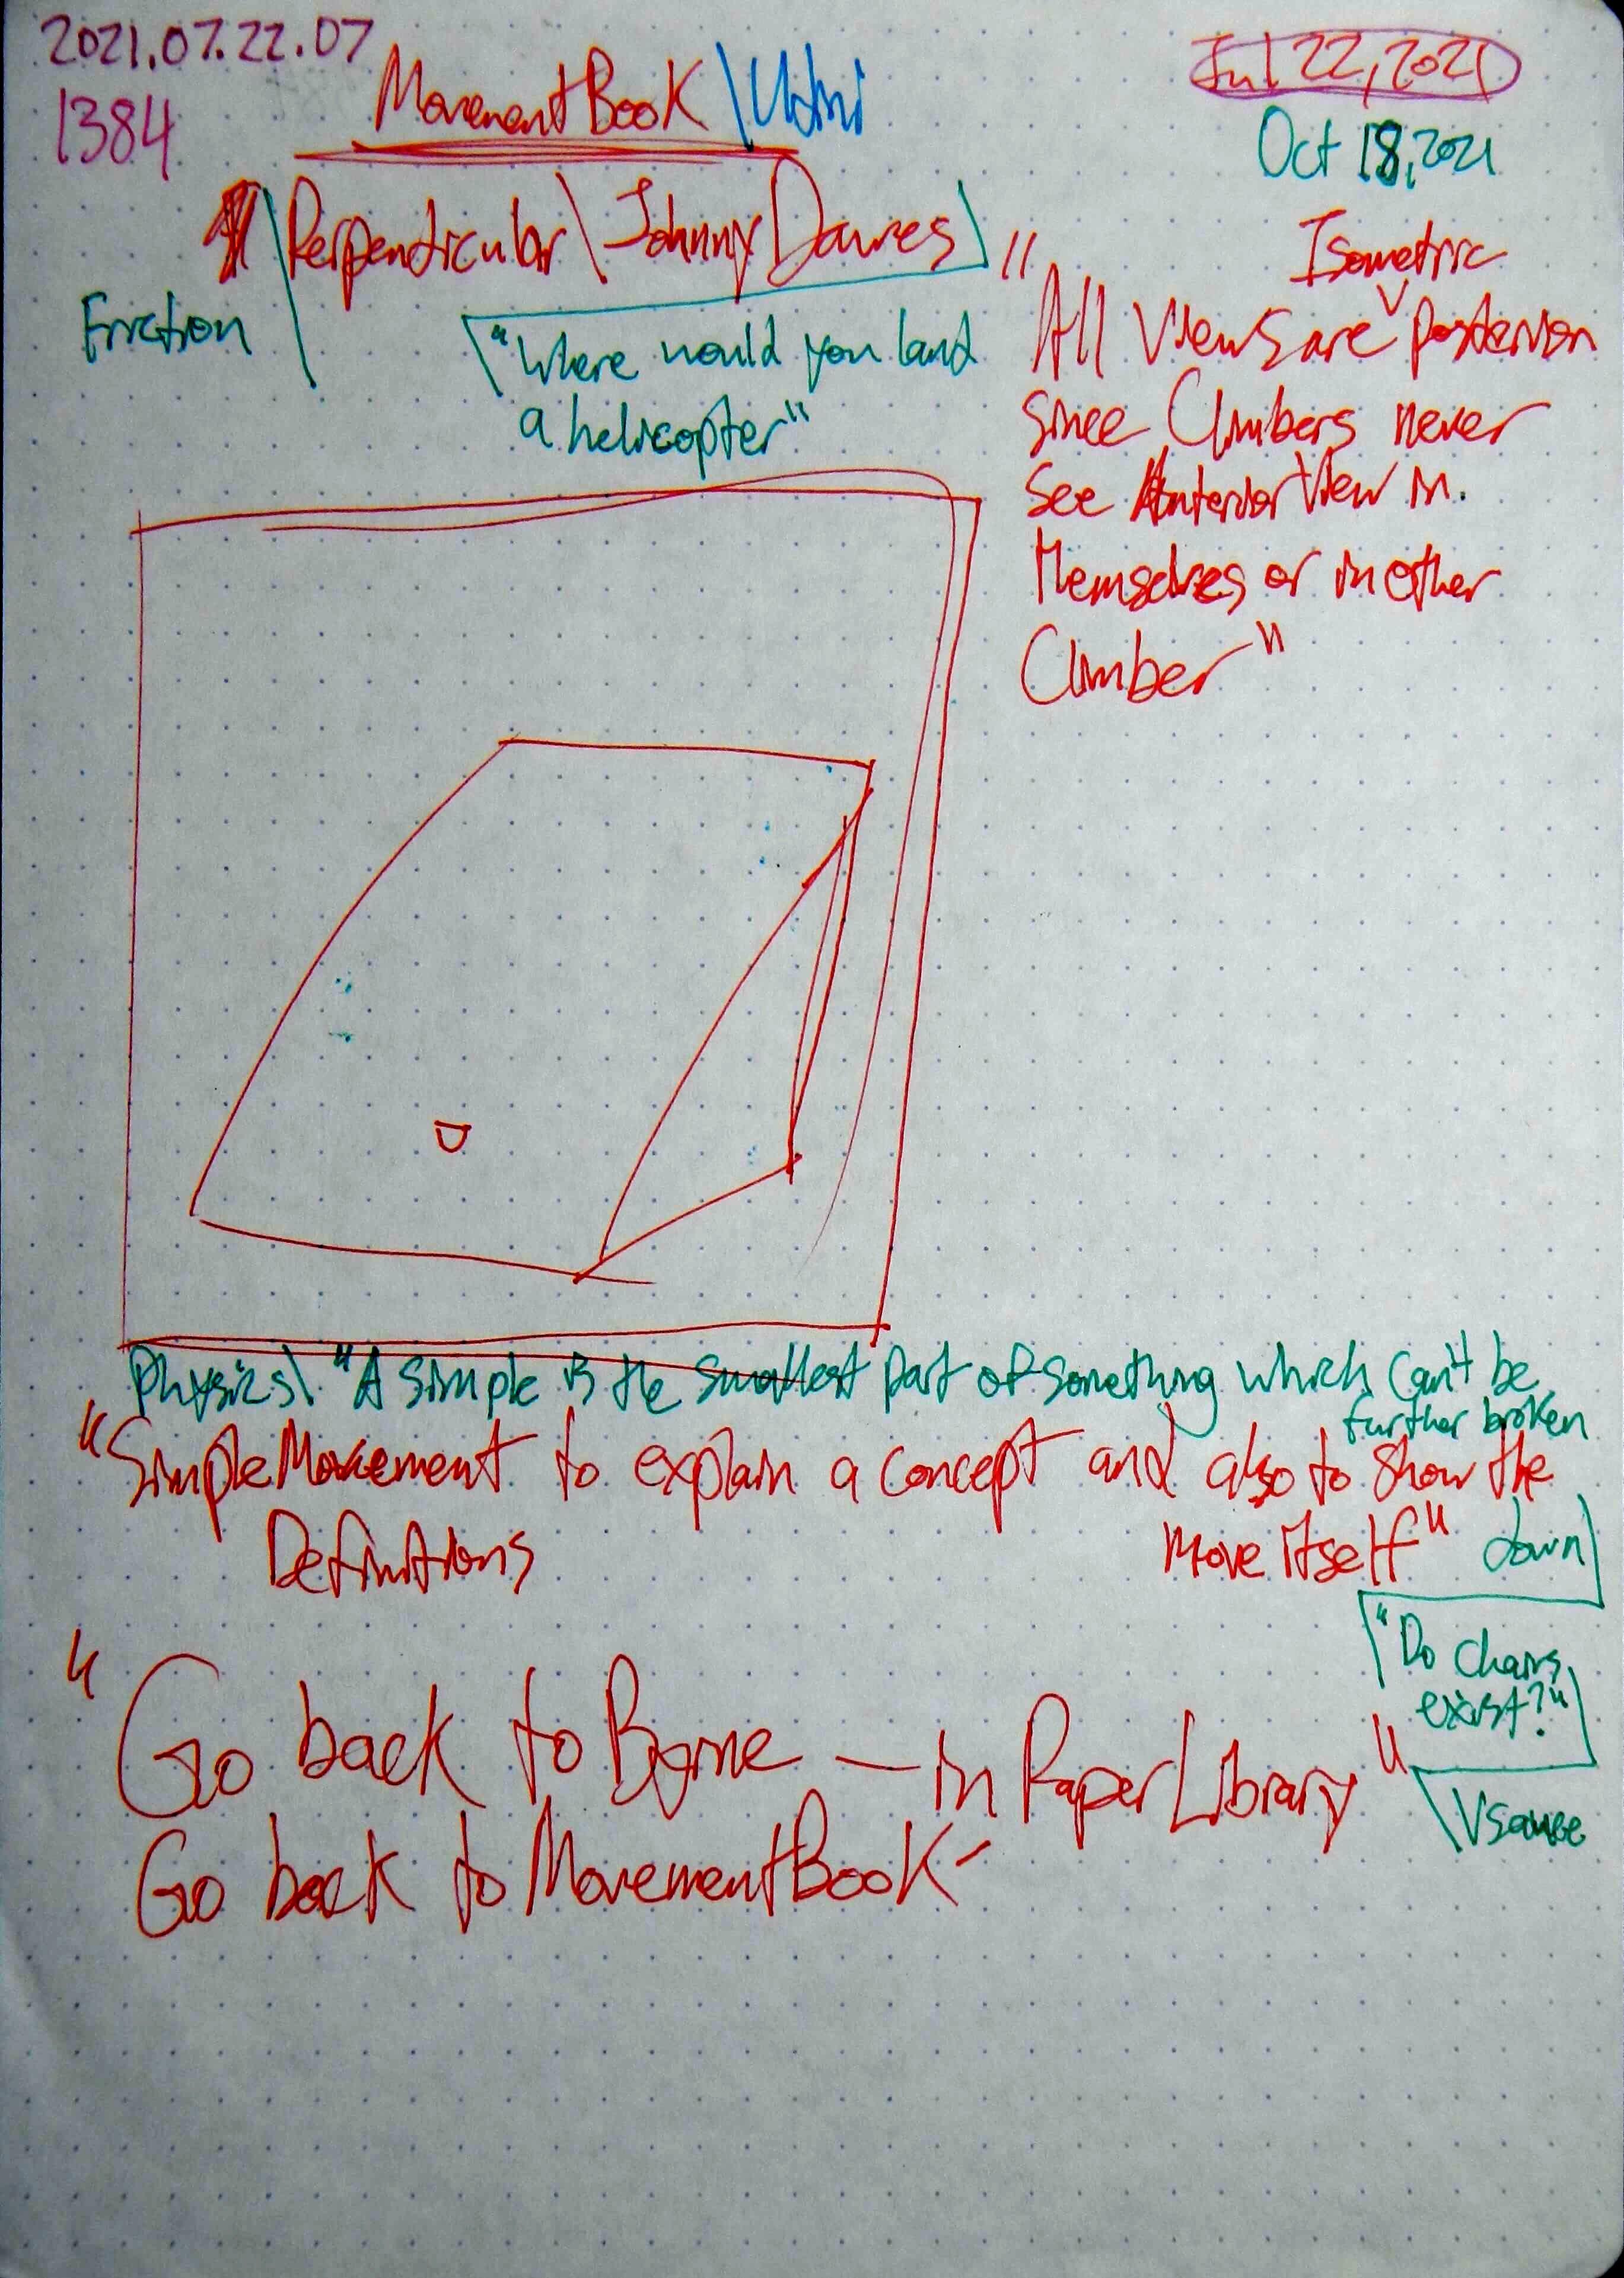 2021.07.22.07
1384
MovementBook \
Jul 22, 2021
Oct 18, 2021
\ Perpendicular \ Johnny Dawes
Friction
"Where would you land
a helicopter"
"
Isometric
All Views are posterior
since Climbers never
see Anterior View in
themselves or in other
Climber"
Physics \ "A simple is the smallest part of something which can't be
further broken
down
"SimpleMovement to explain a concept and also to show the
Definitions
move itself"
"Do chairs
exist?"
\ Vsauce
"Go back to Byrne — in PaperLibrary"
Go back to MovementBook -